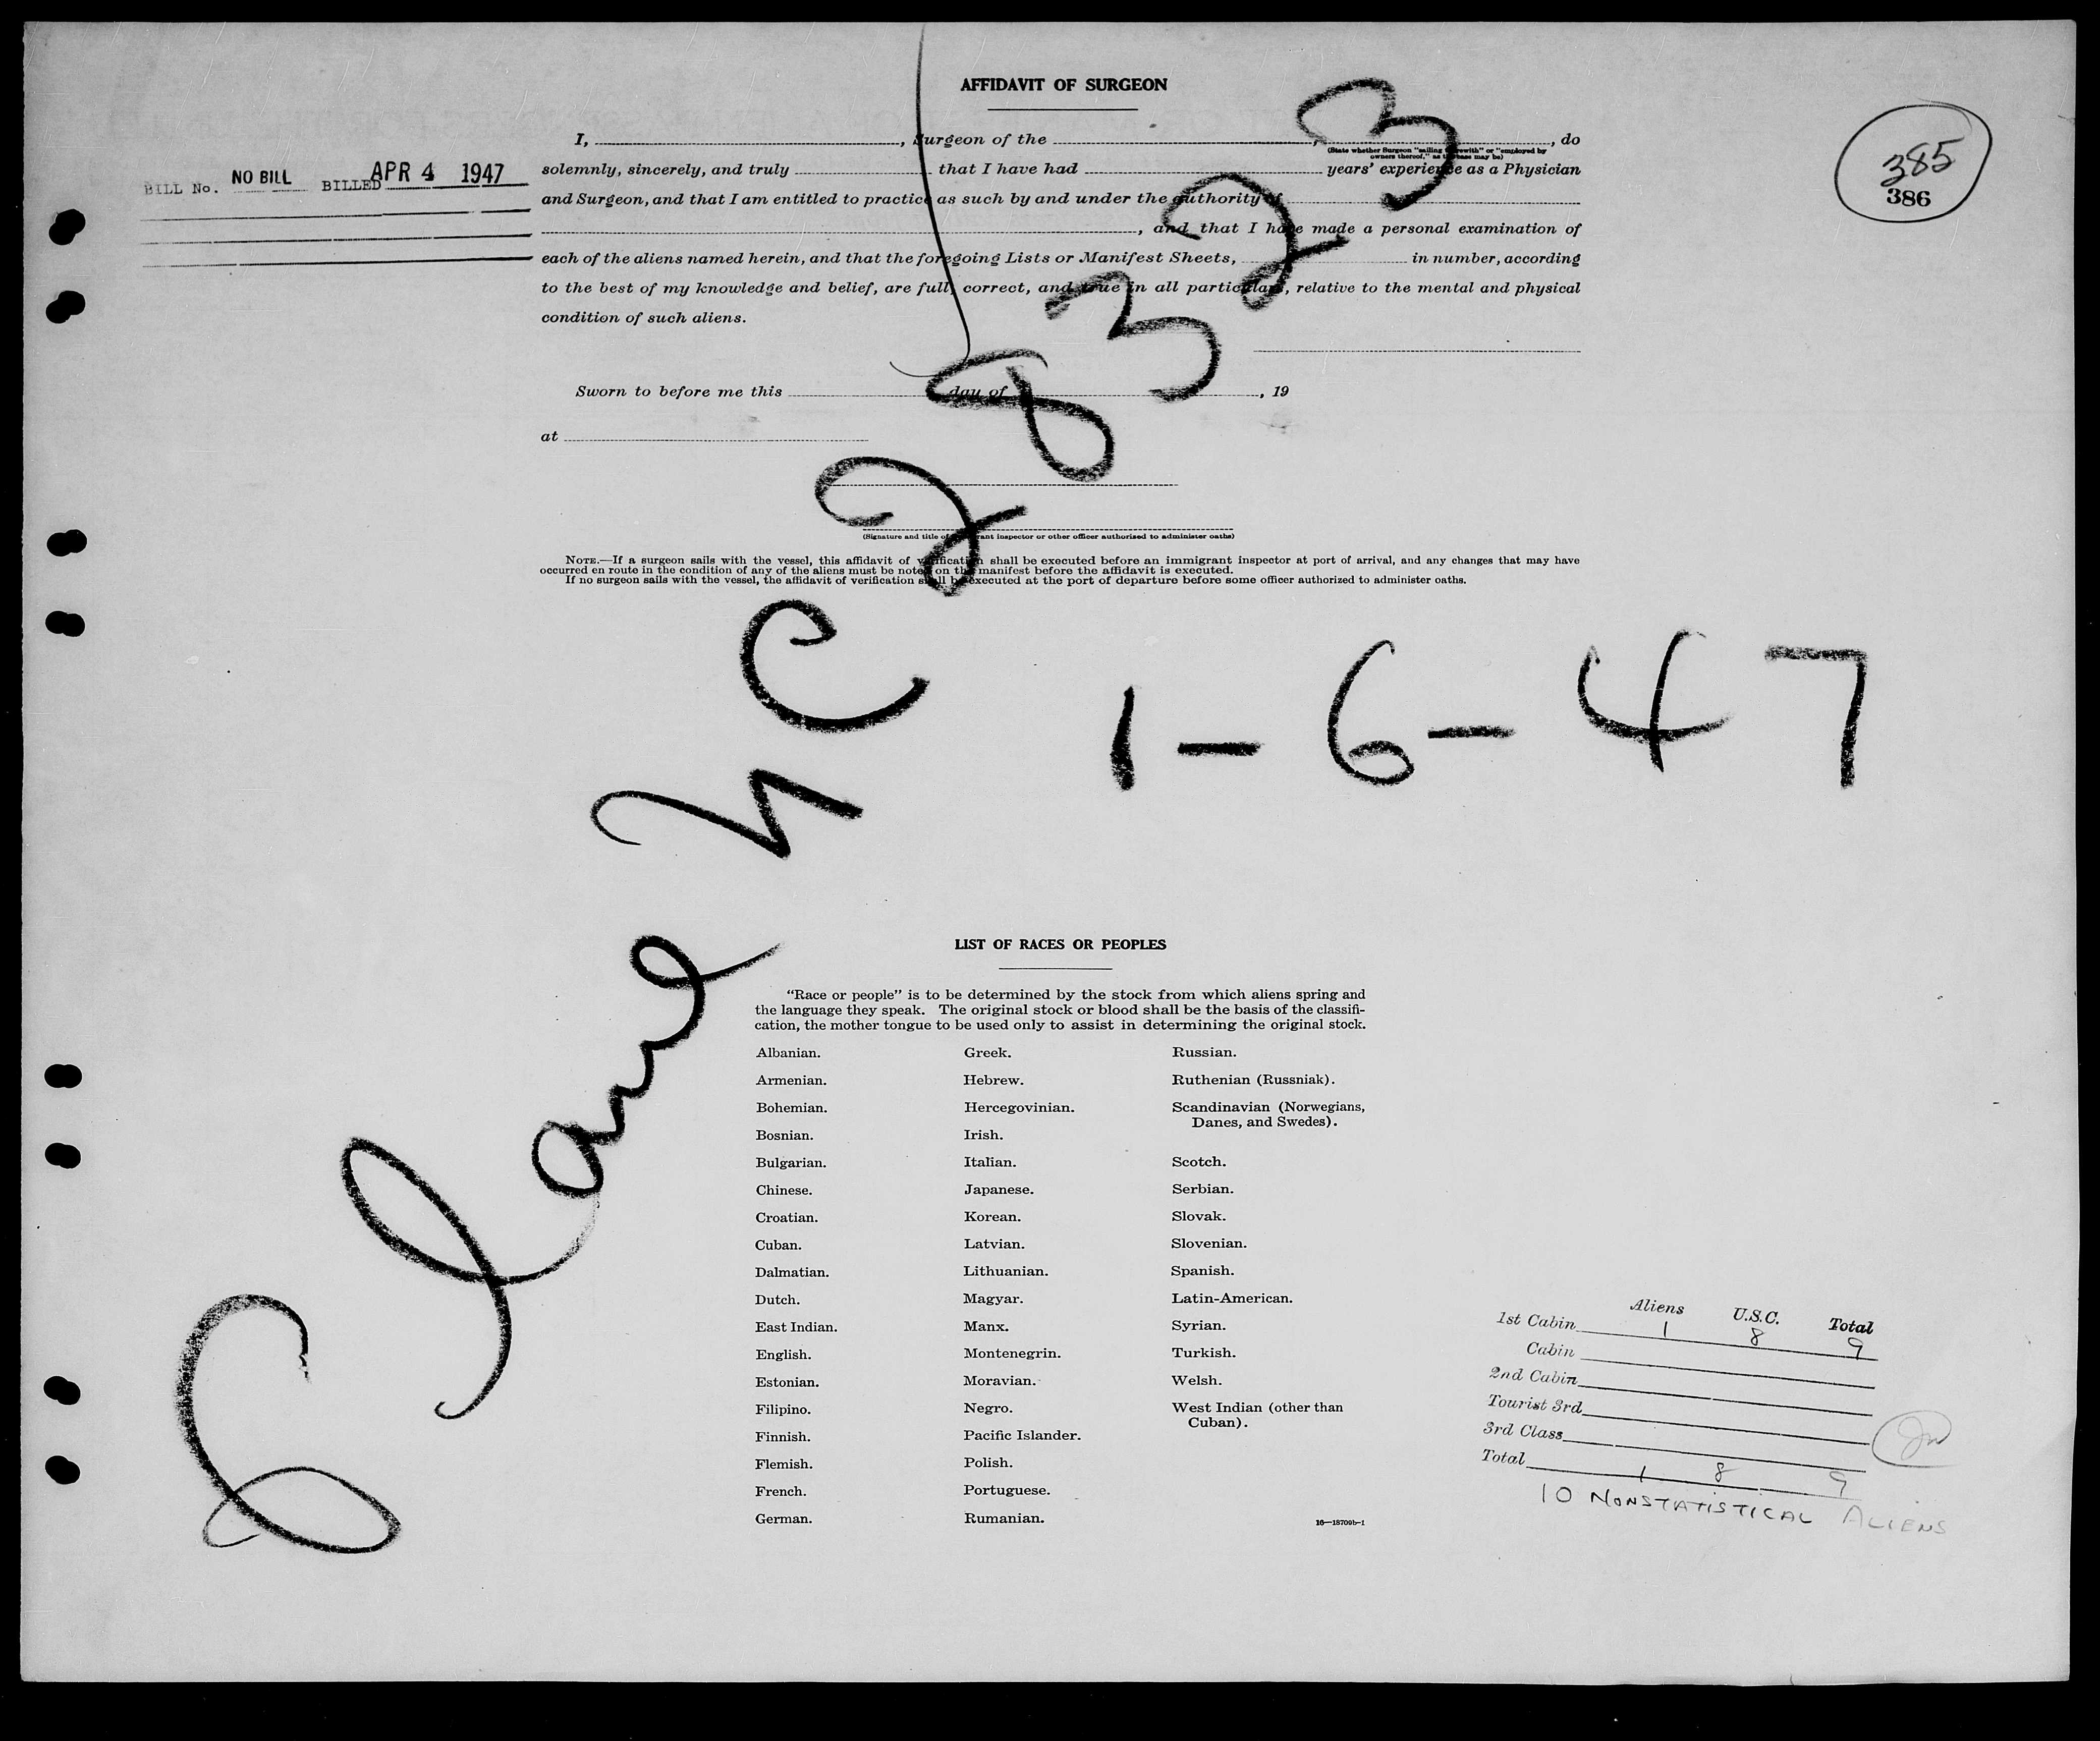 AFFIDAVIT OF SURGEON
I, , Surgeon of the , , do
(State whether Surgeon "sailing therewith" or "employed by
owners thereof," as the case may be)
BILL No. NO BILL BILLED APR 4 1947
385
386
solemnly, sincerely, and truly that I have had years' experience as a Physician
and Surgeon, and that I am entitled to practice as such by and under the authority of
, and that I have made a personal examination of
each of the aliens named herein, and that the foregoing Lists or Manifest Sheets, in number, according
to the best of my knowledge and belief, are full, correct, and true in all particulars, relative to the mental and physical
condition of such aliens.
Sworn to before me this day of , 19
at
(Signature and title of immigrant inspector or other officer authorized to administer oaths)
NOTE.—If a surgeon sails with the vessel, this affidavit of verification shall be executed before an immigrant inspector at port of arrival, and any changes that may have
occurred en route in the condition of any of the aliens must be noted on the manifest before the affidavit is executed.
If no surgeon sails with the vessel, the affidavit of verification shall be executed at the port of departure before some officer authorized to administer oaths.
Plane NC 283323
1-6-47
LIST OF RACES OR PEOPLES
"Race or people" is to be determined by the stock from which aliens spring and
the language they speak. The original stock or blood shall be the basis of the classifi-
cation, the mother tongue to be used only to assist in determining the original stock.
Albanian.
Armenian.
Bohemian.
Bosnian.
Bulgarian.
Chinese.
Croatian.
Cuban.
Dalmatian.
Dutch.
East Indian.
English.
Estonian.
Filipino.
Finnish.
Flemish.
French.
German.
Greek.
Hebrew.
Hercegovinian.
Irish.
Italian.
Japanese.
Korean.
Latvian.
Lithuanian.
Magyar.
Manx.
Montenegrin.
Moravian.
Negro.
Pacific Islander.
Polish.
Portuguese.
Rumanian.
Russian.
Ruthenian (Russniak).
Scandinavian (Norwegians,
Danes, and Swedes).
Scotch.
Serbian.
Slovak.
Slovenian.
Spanish.
Latin-American.
Syrian.
Turkish.
Welsh.
West Indian (other than
Cuban).
16—18709b-1
Aliens U.S.C. Total
1st Cabin 1 8 9
Cabin
2nd Cabin
Tourist 3rd
3rd Class
Total 1 8 9
10 NONSTATISTICAL ALIENS